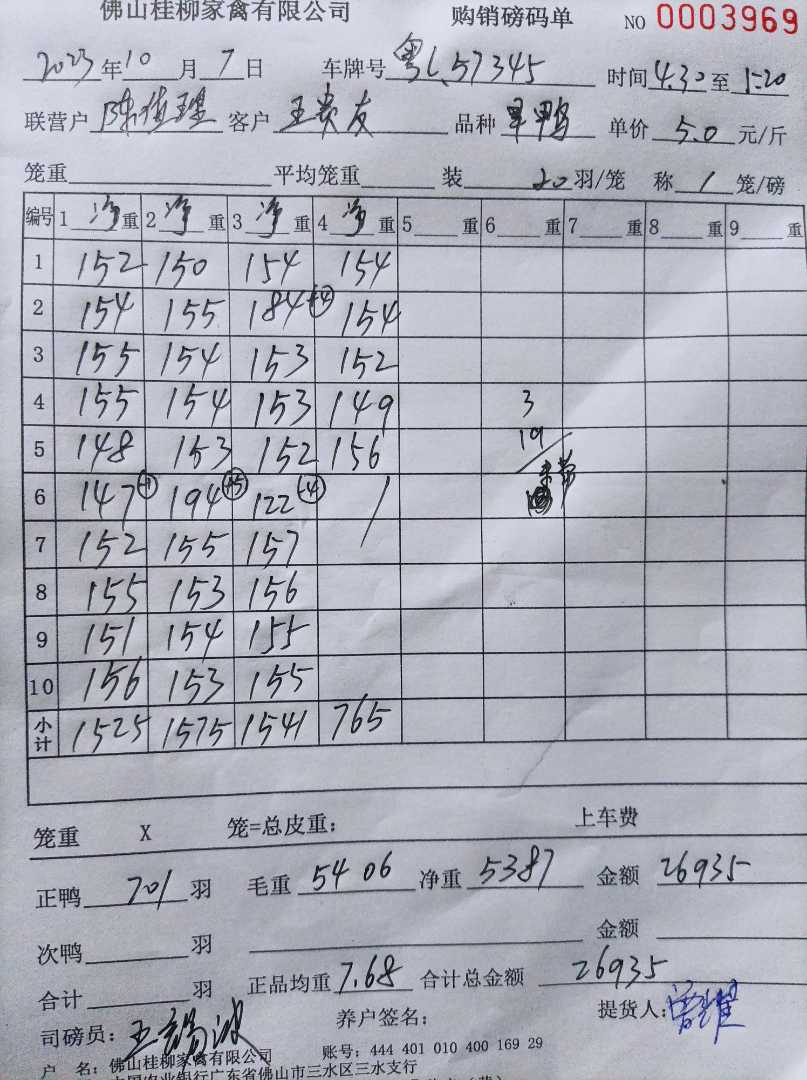 佛山桂柳家禽有限公司 购销磅码单 NO 0003969
2023年10月7日 车牌号粤L57345 时间4.30至5.20
联营户 客户王贵友 品种旱鸭 单价5.0元/斤
笼重 平均笼重 装20羽/笼 称1笼/磅
编号 1净重 2净重 3净重 4净重 5重 6重 7重 8重 9重
1 152 150 154 154
2 154 155 184+4 154
3 155 154 153 152
4 155 154 153 149 3
5 148 153 152 156 19
6 147-1 194+5 122-4 /
7 152 155 157
8 155 153 156
9 151 154 155
10 156 153 155
小计 1525 1575 1541 765
笼重 X 笼=总皮重: 上车费
正鸭701羽 毛重5406 净重5387 金额26935
次鸭 羽 金额
合计 羽 正品均重7.68 合计总金额26935
司磅员: 养户签名: 提货人:
户 名: 佛山桂柳家禽有限公司 账号: 444 401 010 400 169 29
中国农业银行广东省佛山市三水区三水支行